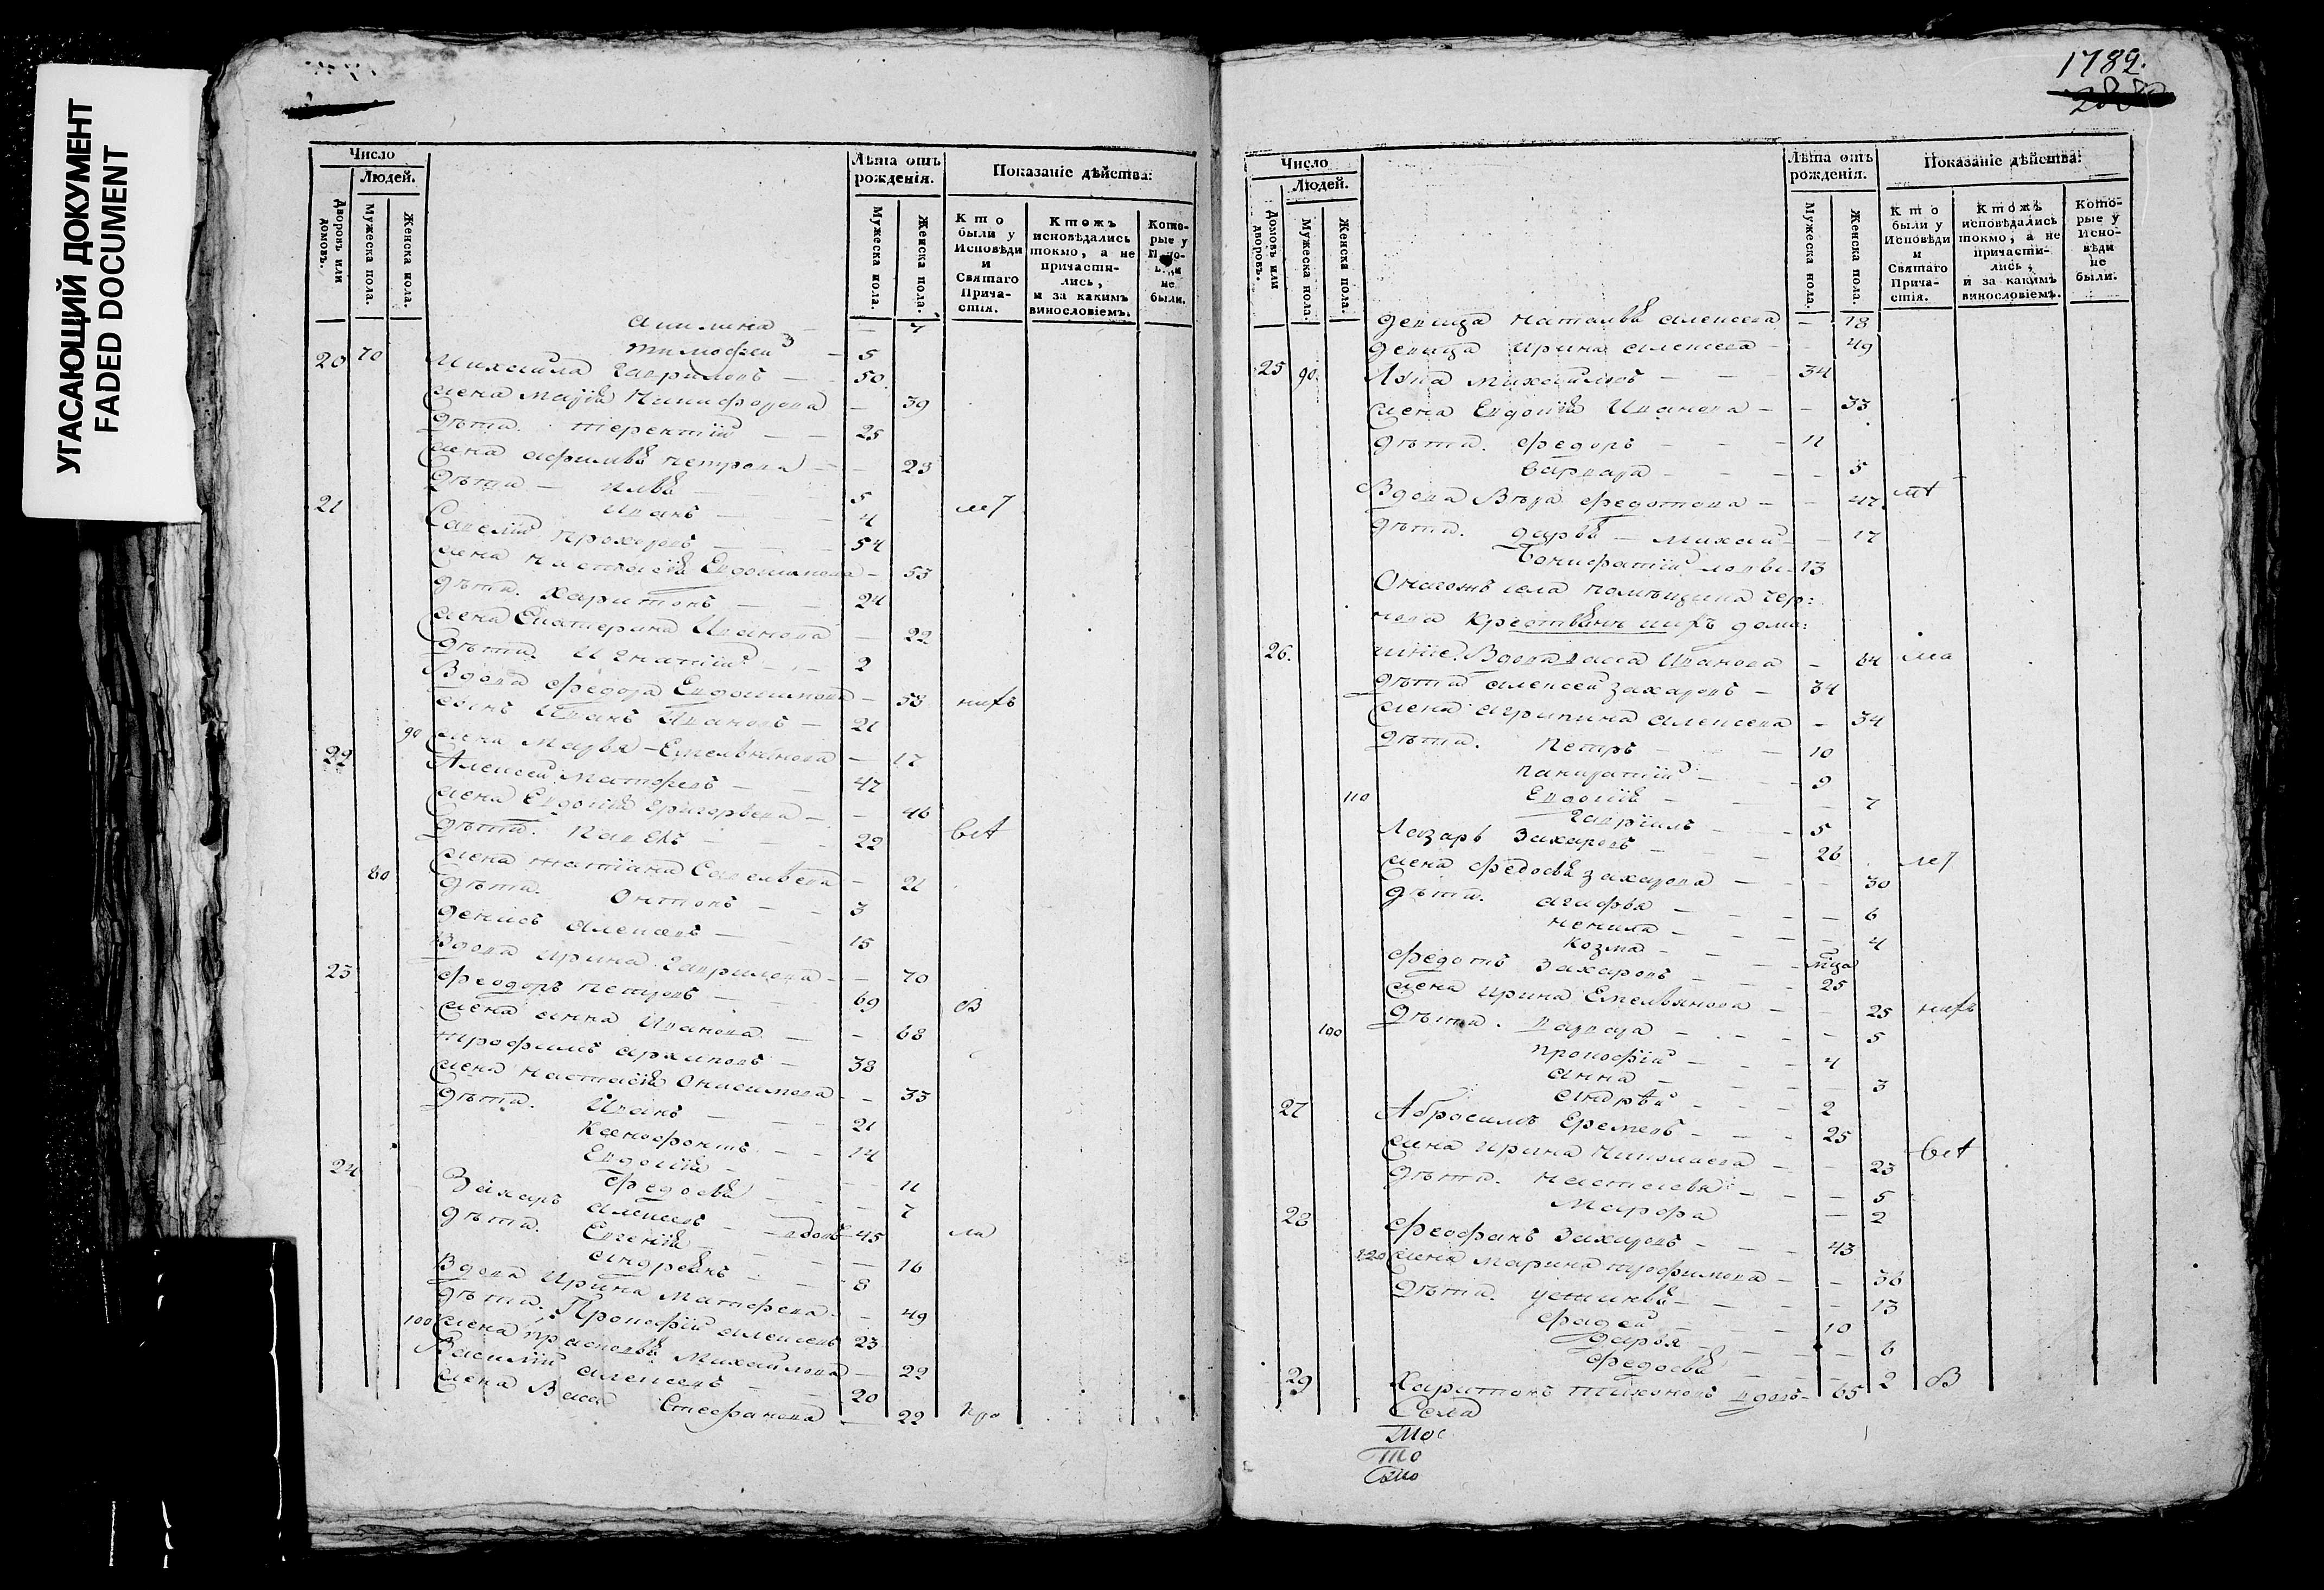 УГАСАЮЩИЙ ДОКУМЕНТ
FADED DOCUMENT
Число
Людей.
Дворовъ или домовъ.
Мужеска пола.
Женска пола.
Лѣта отъ рожденія.
Мужеска пола.
Женска пола.
Показаніе дѣйства:
Кто были у Исповѣди и Святаго Причастія.
Ктожъ исповѣдались токмо, а не причастились, и за какимъ винословіемъ.
Которые у Исповѣди не были.
Акилина — 7
Тимофей — 5
20 70 Михайла Гавриловъ — 50
жена Марія Никифорова — 39
дѣти. Терентій — 25
жена Афимья Петрова — 23
дѣти — Илья — 5
21 Иванъ — 4
Савелий Прохоровъ — 54
жена Настасія Евдокимова — 53
дѣти. Харитонъ — 24
жена Екатерина Иванова — 22
дѣти. Игнатій — 2
Вдова Федора Евдокимова — 53
сынъ Иванъ Ивановъ — 21
90 жена Марья Емельянова — 17
22 Алексей Матфеевъ — 47
жена Евдокія Григорьева — 46
дѣти. Павелъ — 22
жена Татіана Савельева — 21
80 дѣти. Антонъ — 3
Денисъ Алексеевъ — 15
Вдова Ирина Гаврилова — 70
23 Феодоръ Петровъ — 69
жена Анна Иванова — 68
Трофимъ Архиповъ — 38
жена Настасія Онисимова — 35
дѣти. Иванъ — 21
Ксенофонтъ — 14
Евдокія — 11
24 Федосья — 7
Захаръ Алексеевъ — вдовъ 45
дѣти. Евгенія — 16
Андреянъ — 8
Вдова Ирина Матфеева — 49
дѣти. Прокофій Алексеевъ 23
100 жена Прасковья Михайлова — 22
Василій Алексеевъ — 20
жена Васса Стефанова — 22
1782.
Число
Людей.
Домовъ или дворовъ.
Мужеска пола.
Женска пола.
Лѣта отъ рожденія.
Мужеска пола.
Женска пола.
Показаніе дѣйства:
Кто были у Исповѣди и Святаго Причастія.
Ктожъ исповѣдались токмо, а не причастились, и за какимъ винословіемъ.
Которые у Исповѣди не были.
девица Наталья Алексеева — 18
девица Ирина Алексеева — 49
25 90. Лука Михайловъ — 34
жена Евдокія Иванова — 33
дѣти. Федоръ — 11
Варвара — 5
Вдова Вѣра Федотова — 47
дѣти. Дарья — 17
Бонифатій — 13
Онагожъ села помещика Чер:
нова крестьянъ ихъ дома:
26. шніе. Вдова Васса Иванова — 64
дѣти Алексей Захаровъ — 34
жена Агрипина Алексеева — 34
дѣти. Петръ — 10
Панкратій — 9
110 Евдокія — 7
Гавріилъ — 5
Лазарь Захаровъ — 26
жена Федосья Захарова — 30
дѣти. Агафья — 6
Ненила — 4
Козма —
Федотъ Захаровъ — 25
жена Ирина Емельянова — 25
100 дѣти. Варвара — 5
Прокофій — 4
Анна — 3
Андрѣй — 2
27 Абросимъ Еремеевъ — 25
жена Ирина Николаева — 23
дѣти. Настасья — 5
Марфа — 2
28 Феофанъ Захаровъ — 43
120 жена Марина Трофимова — 36
дѣти. Устинья — 13
Фадей — 10
Дарья — 6
Федосья — 2
29 Харитонъ Тихоновъ вдовъ — 65
Села